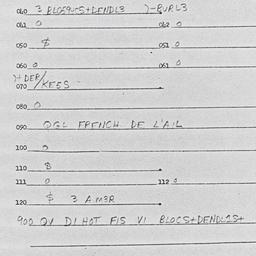 040 3 BLOSQUS+DENDL3 )-BURL3
041 0 042 0
050 $ 051 0
060 0 061 0
)+DER/KEES
070
080 0
090 OGL FRENCH DE L'AIL
100
110 8
111 0 112 0
120 $ 3 AM3R
900 QV DI HOT FIS VI BLOCS+DENDL2S+